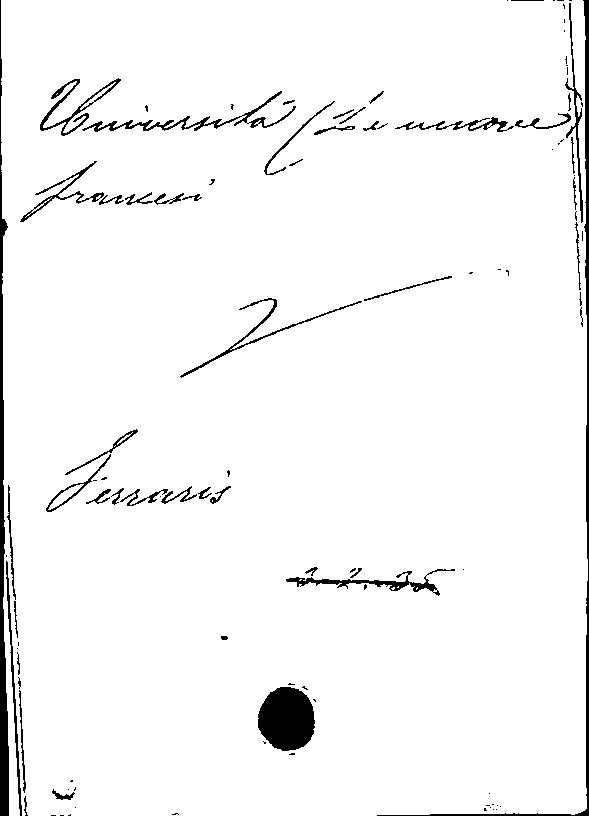 Università (Le nuove)
francesi
Ferraris
3.2.35